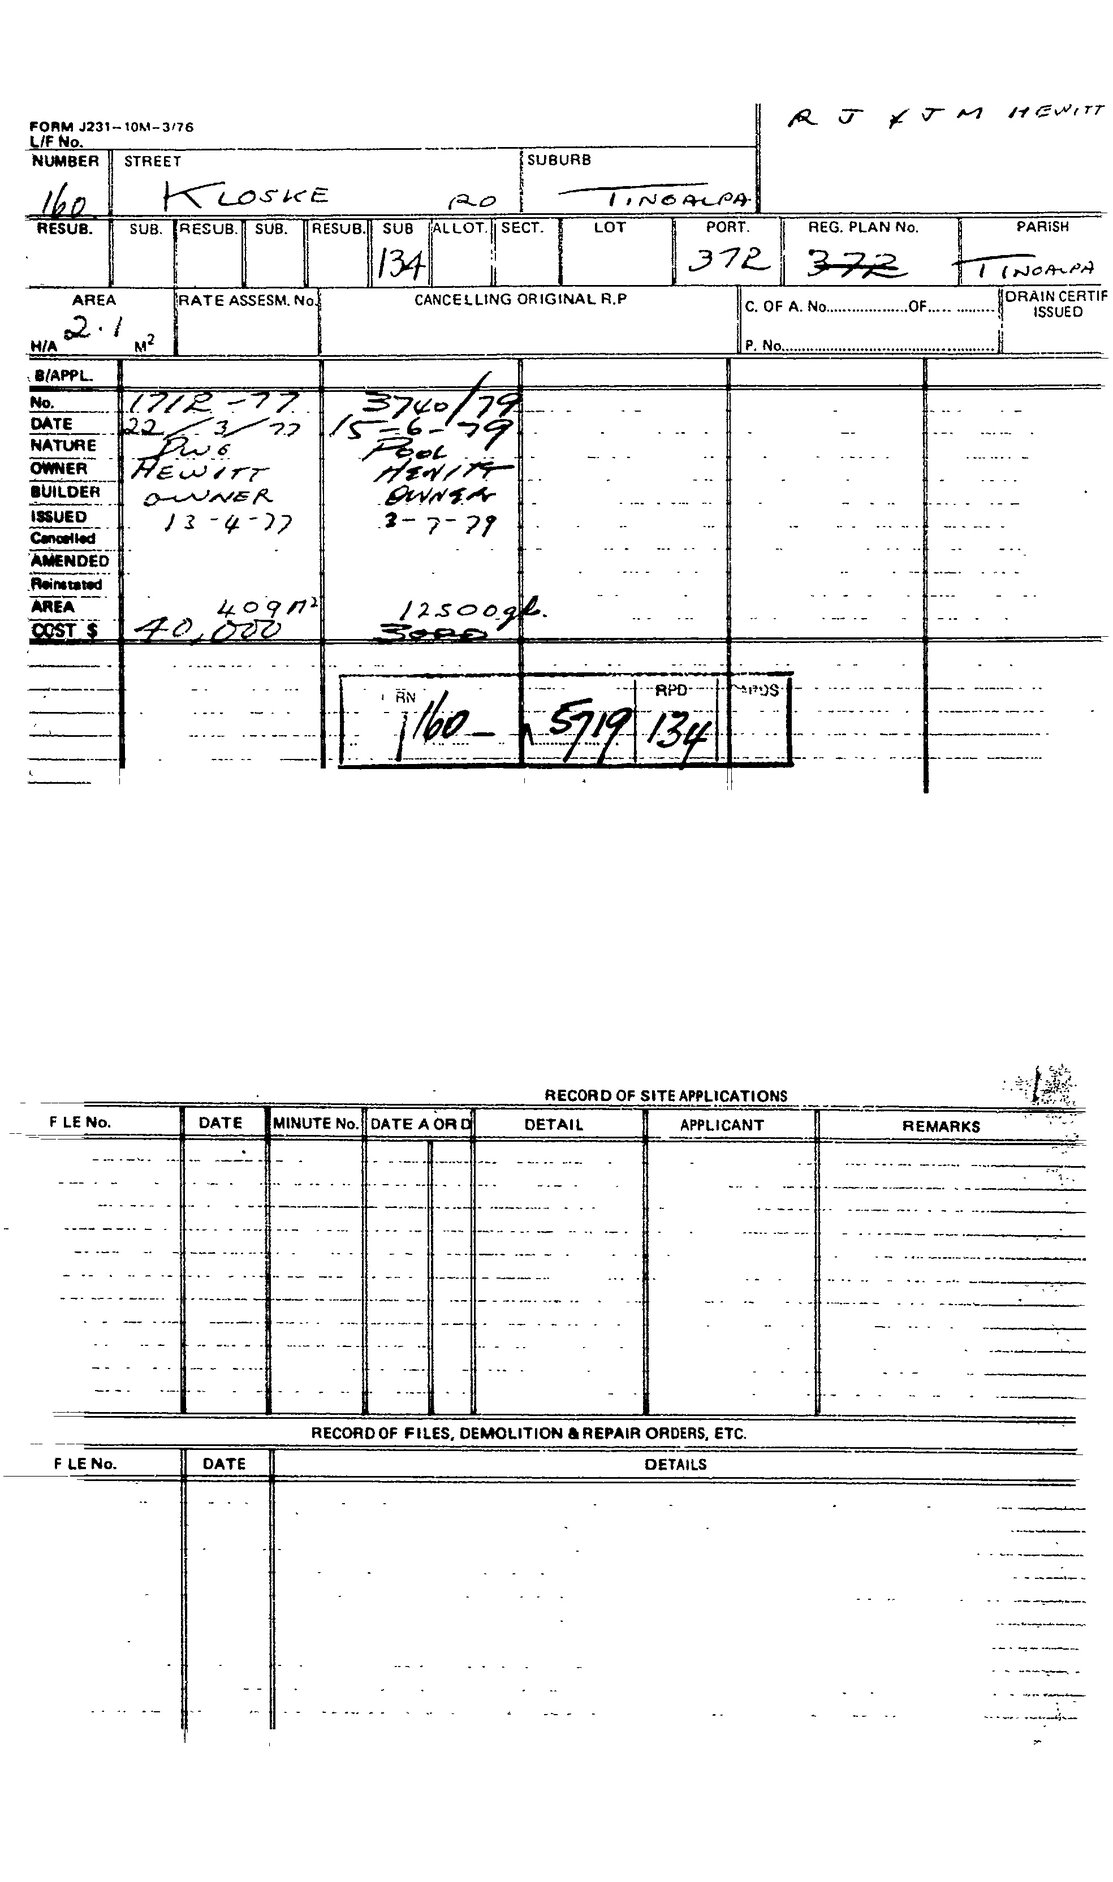 R J & J M HEWITT
FORM J231-10M-3/76
L/F No.
NUMBER STREET SUBURB
160 KLOSKE RD TINGALPA
RESUB. SUB. RESUB. SUB. RESUB. SUB ALLOT. SECT. LOT PORT. REG. PLAN No. PARISH
134 372 372 TINGALPA
AREA RATE ASSESM. No. CANCELLING ORIGINAL R.P C. OF A. No. OF DRAIN CERTIF
ISSUED
2.1
H/A M2 P. No.
B/APPL.
No. 1712-77 3740/79
DATE 22/3/77 15-6-79
NATURE DWG POOL
OWNER HEWITT HEWITT
BUILDER OWNER OWNER
ISSUED 13-4-77 3-7-79
Cancelled
AMENDED
Reinstated
AREA 409 M2 12500 gl.
COST $ 40,000 3000
RN RPD
160 - 5719 134
RECORD OF SITE APPLICATIONS
F LE No. DATE MINUTE No. DATE A OR D DETAIL APPLICANT REMARKS
RECORD OF FILES, DEMOLITION & REPAIR ORDERS, ETC.
F LE No. DATE DETAILS